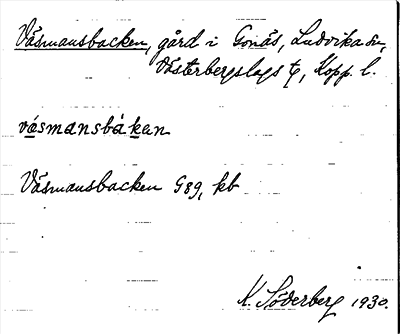 Väsmansbacken, gård i Gonäs, Ludvika sn,
Västerbergslags tg, Kopp. l.
väsmansbakan
Väsmansbacken G89, kb
K. Söderberg 1930.